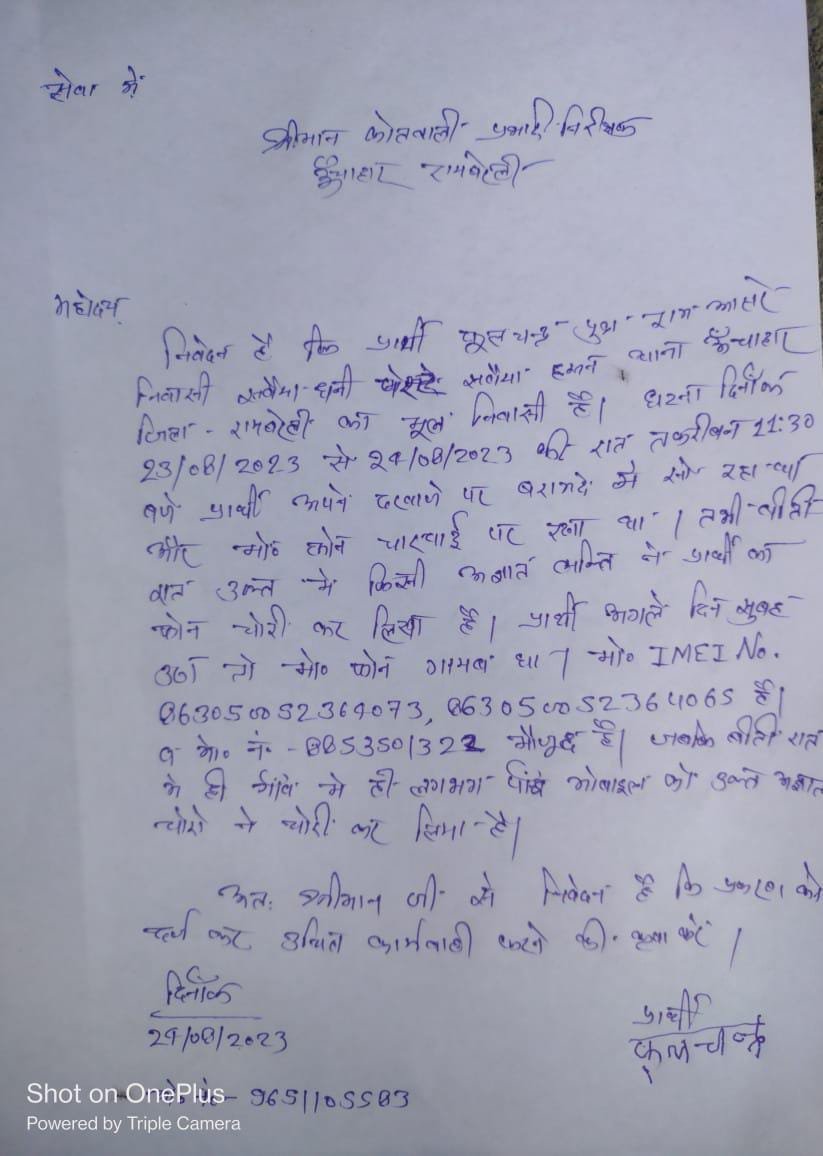 सेवा में
श्रीमान कोतवाली प्रभारी निरीक्षक
ऊँचाहार रायबरेली
महोदय
निवेदन है कि प्रार्थी फूलचन्द्र पुत्र राम आसरे
निवासी सवैया धनी सवैया हसन थाना ऊँचाहार
जिला - रायबरेली का मूल निवासी है। घटना दिनाँक
23/08/2023 से 24/08/2023 की रात तकरीबन 11:30
बजे प्रार्थी अपने दरवाजे पर बरामदे में सो रहा था
और मो० फोन चारपाई पर रखा था। तभी बीती
रात उक्त में किसी अज्ञात व्यक्ति ने प्रार्थी का
फोन चोरी कर लिया है। प्रार्थी अगले दिन सुबह
उठा तो मो० फोन गायब था। मो० IMEI No.
है।
व मो० नं० - मौजूद है। जबकि बीती रात
मे ही गांव मे ही लगभग पांच मोबाइल को उक्त अज्ञात
चोरो ने चोरी कर लिया है।
अतः श्रीमान जी से निवेदन है कि प्रकरण को
दर्ज कर उचित कार्यवाही करने की कृपा करें।
दिनाँक
24/08/2023
प्रार्थी
फूलचन्द्र
Shot on OnePlus
Powered by Triple Camera